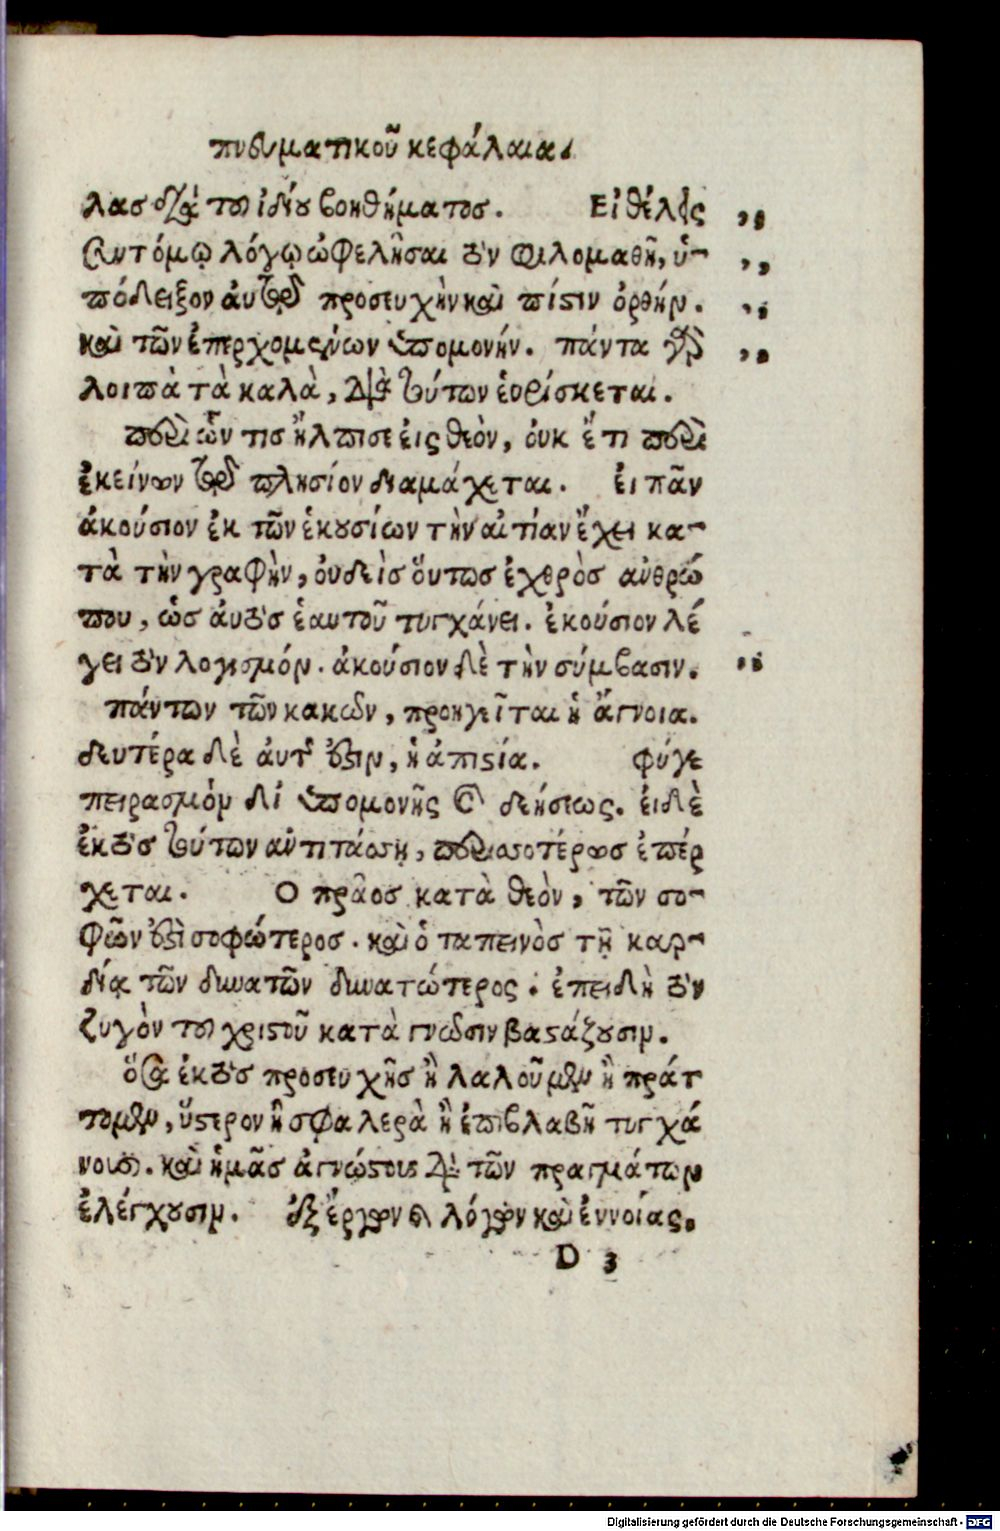 πνευματικοῦ κεφάλαια.
λας διὰ τοῦ ἰδίου βοηθήματος. Εἰ θέλεις
συντόμῳ λόγῳ ὠφελῆσαι τὸν φιλομαθῆ, ὑ-
πόδειξον ἀυτῷ προσευχὴν καὶ πίστιν ὀρθὴν.
καὶ τῶν ἐπερχομένων ὑπομονήν. πάντα γὰρ
λοιπὰ τὰ καλὰ, διὰ τούτων ἑυρίσκεται.
περὶ ὧν τις ἤλπισε ἐις θεὸν, ὀυκ ἔτι περὶ
ἐκείνων τῷ πλησίον διαμάχεται. ἐι πᾶν
ἀκούσιον ἐκ τῶν ἑκουσίων τὴν αἰτίαν ἔχει κα-
τὰ τὴν γραφὴν, ὀυδεὶς ὅυτως ἐχθρὸς ἀνθρώ
που, ὡς ἀυτὸς ἑαυτοῦ τυγχάνει. ἑκούσιον λέ
γει τὸν λογισμόν. ἀκούσιον δὲ τὴν σύμβασιν.
πάντων τῶν κακῶν, προηγεῖται ἡ ἄγνοια.
δευτέρα δὲ ἀυτῆς ἐστιν, ἡ ἀπιστία. φύγε
πειρασμὸν δι ὑπομονῆς καὶ δεήσεως. ἐι δὲ
ἐκτὸς τούτων ἀντιτάσσῃ, περισσοτέρως ἐπέρ
χεται. Ο πρᾶος κατὰ θεὸν, τῶν σο-
φῶν ἐστὶ σοφώτερος. καὶ ὁ ταπεινὸς τῇ καρ-
δίᾳ τῶν δυνατῶν δυνατώτερος. ἐπειδὴ τὸν
ζυγὸν τοῦ χριστοῦ κατὰ γνῶσιν βαστάζουσιν.
ὅσα ἐκτὸς προσευχῆς ἢ λαλοῦμεν ἢ πράτ
τομεν, ὕστερον ἢ σφαλερὰ ἢ ἐπιβλαβῆ τυγχά
νουσι. καὶ ἡμᾶς ἀγνώστως διὰ τῶν πραγμάτων
ἐλέγχουσιν. ἐξ ἔργων καὶ λόγων καὶ ἐννοίας.
D 3
Digitalisierung gefördert durch die Deutsche Forschungsgemeinschaft - DFG